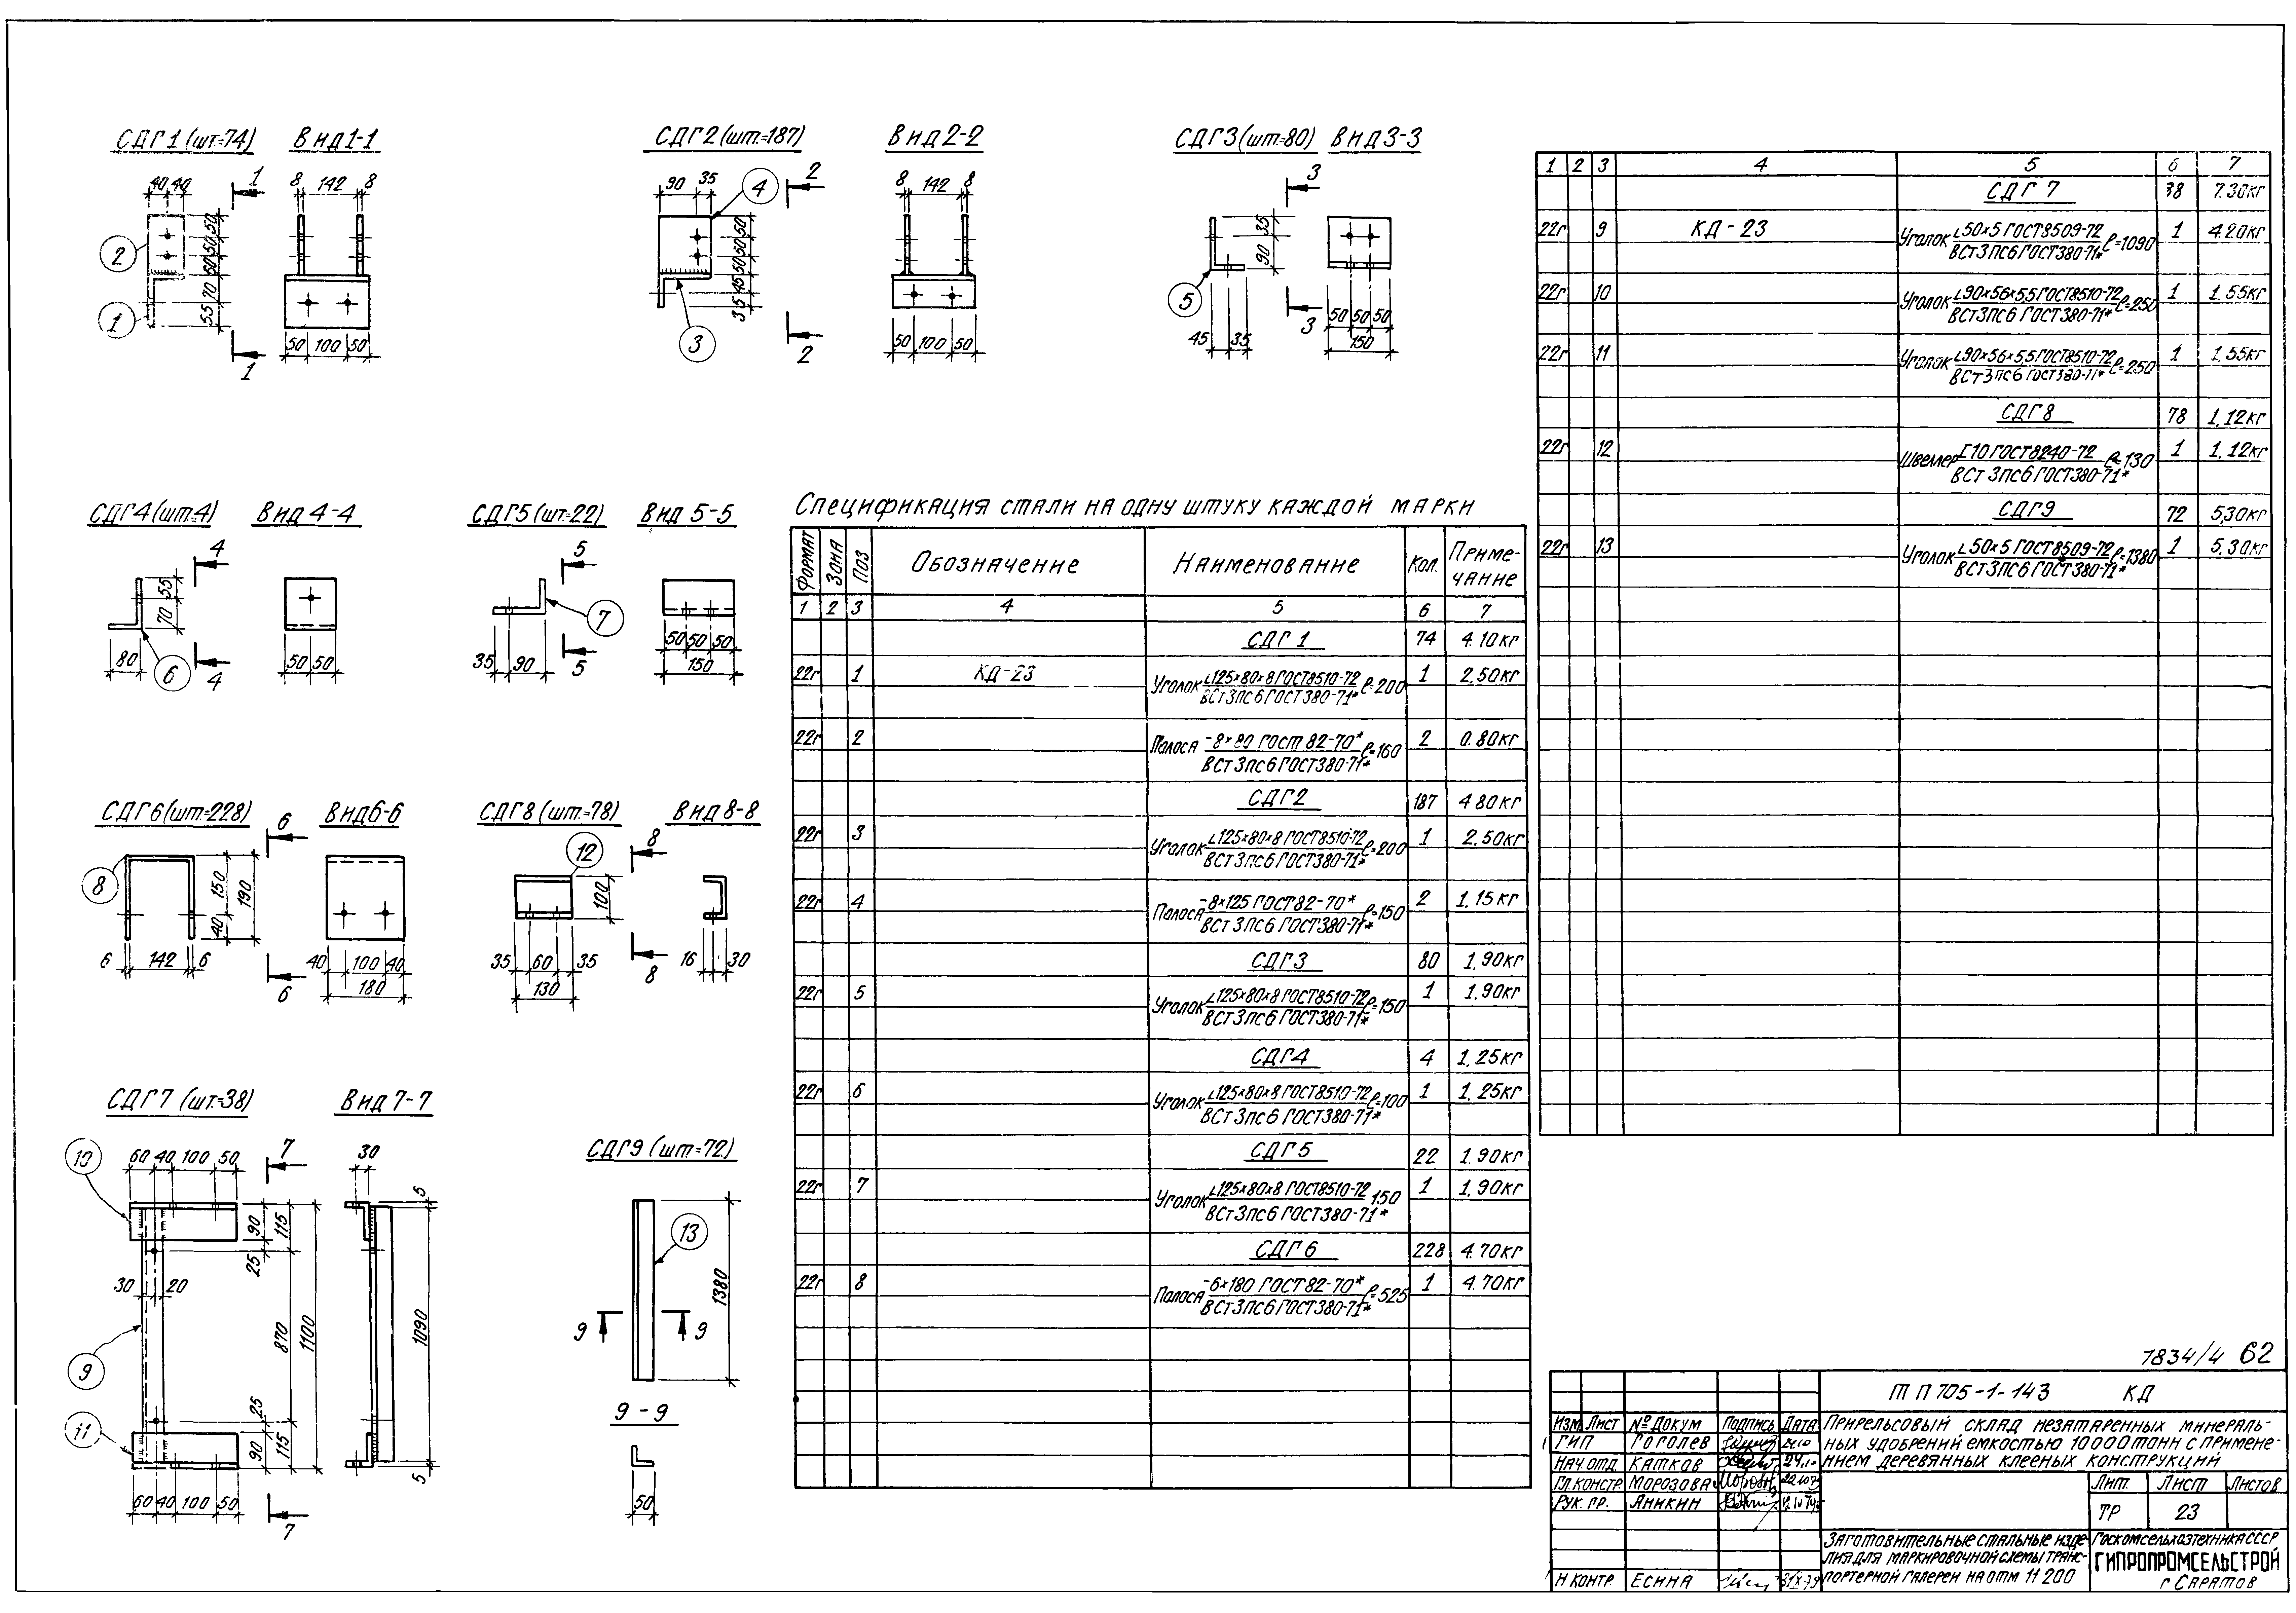 СДГ1 (шт.=74) Вид 1-1
40 40 1 8 142 8
50 50 50 70 55
2
1
50 100 50
1
СДГ2 (шт.=187) Вид 2-2
90 35 4 2 8 142 8
50 50 50 45 35
3
2
50 100 50
СДГ3 (шт.=80) Вид 3-3
3
35 90
5
3
45 35
50 50 50
150
СДГ4 (шт.=4) Вид 4-4
4
55 70
80 6 4
50 50
СДГ5 (шт.=22) Вид 5-5
5
7
35 90 5
50 50 50
150
СДГ6 (шт.=228) Вид 6-6
6
8
150 190
40
6 142 6
6
40 100 40
180
СДГ8 (шт.=78) Вид 8-8
12 8
100
35 60 35
8
130
16 30
СДГ7 (шт.=38) Вид 7-7
10
60 40 100 50 7 30
5
90 115
25
30 20
870 1100 1090
9
25
11
90 115
5
60 40 100 50
7
СДГ9 (шт=72)
13
1380
9 9
9-9
50
Спецификация стали на одну штуку каждой марки
Формат Зона Поз Обозначение Наименование Кол. Примечание
1 2 3 4 5 6 7
СДГ 1 74 4.10кг
22г 1 КД-23 Уголок L125×80×8 ГОСТ8510-72 ℓ=200 1 2,50кг
ВСт3пс6 ГОСТ380-71*
22г 2 Полоса -8×80 ГОСТ 82-70* ℓ=160 2 0.80кг
ВСт3пс6 ГОСТ380-71*
СДГ2 187 4.80кг
22г 3 Уголок L125×80×8 ГОСТ8510-72 ℓ=200 1 2,50кг
ВСт3пс6 ГОСТ380-71*
22г 4 Полоса -8×125 ГОСТ82-70* ℓ=150 2 1,15кг
ВСт3пс6 ГОСТ380-71*
СДГ3 80 1,90кг
22г 5 Уголок L125×80×8 ГОСТ8510-72 ℓ=150 1 1.90кг
ВСт3пс6 ГОСТ380-71*
СДГ4 4 1,25кг
22г 6 Уголок L125×80×8 ГОСТ8510-72 ℓ=100 1 1,25кг
ВСт3пс6 ГОСТ380-71*
СДГ5 22 1.90кг
22г 7 Уголок L125×80×8 ГОСТ8510-72 150 1 1,90кг
ВСт3пс6 ГОСТ380-71*
СДГ6 228 4.70кг
22г 8 Полоса -6×180 ГОСТ82-70* ℓ=525 1 4.70кг
ВСт3пс6 ГОСТ380-71*
1 2 3 4 5 6 7
СДГ 7 38 7.30кг
22г 9 КД-23 Уголок L50×5 ГОСТ8509-72 ℓ=1090 1 4.20кг
ВСт3пс6 ГОСТ380-71*
22г 10 Уголок L90×56×5,5 ГОСТ8510-72 ℓ=250 1 1.55кг
ВСт3пс6 ГОСТ380-71*
22г 11 Уголок L90×56×5,5 ГОСТ8510-72 ℓ=250 1 1,55кг
ВСт3пс6 ГОСТ380-71*
СДГ8 78 1,12кг
22г 12 Швеллер [10 ГОСТ8240-72 ℓ=130 1 1,12кг
ВСт3пс6 ГОСТ380-71*
СДГ9 72 5,30кг
22г 13 Уголок L50×5 ГОСТ8509-72 ℓ=1380 1 5,30кг
ВСт3пс6 ГОСТ380-71*
7834/4 62
ТП 705-1-143 КД
Изм. Лист № Докум Подпись Дата
ГИП Гоголев
Нач.отд Катков
Гл.констр. Морозова
Рук.гр. Яникин
Н контр. Есина
Прирельсовый склад незатаренных минераль-
ных удобрений емкостью 10000 тонн с примене-
нием деревянных клееных конструкций
Лит. Лист Листов
ТР 23
Заготовительные стальные изде-
лия для маркировочной схемы транс-
портерной галереи на отм 11 200
Госкомсельхозтехника СССР
ГИПРОПРОМСЕЛЬСТРОЙ
г Саратов